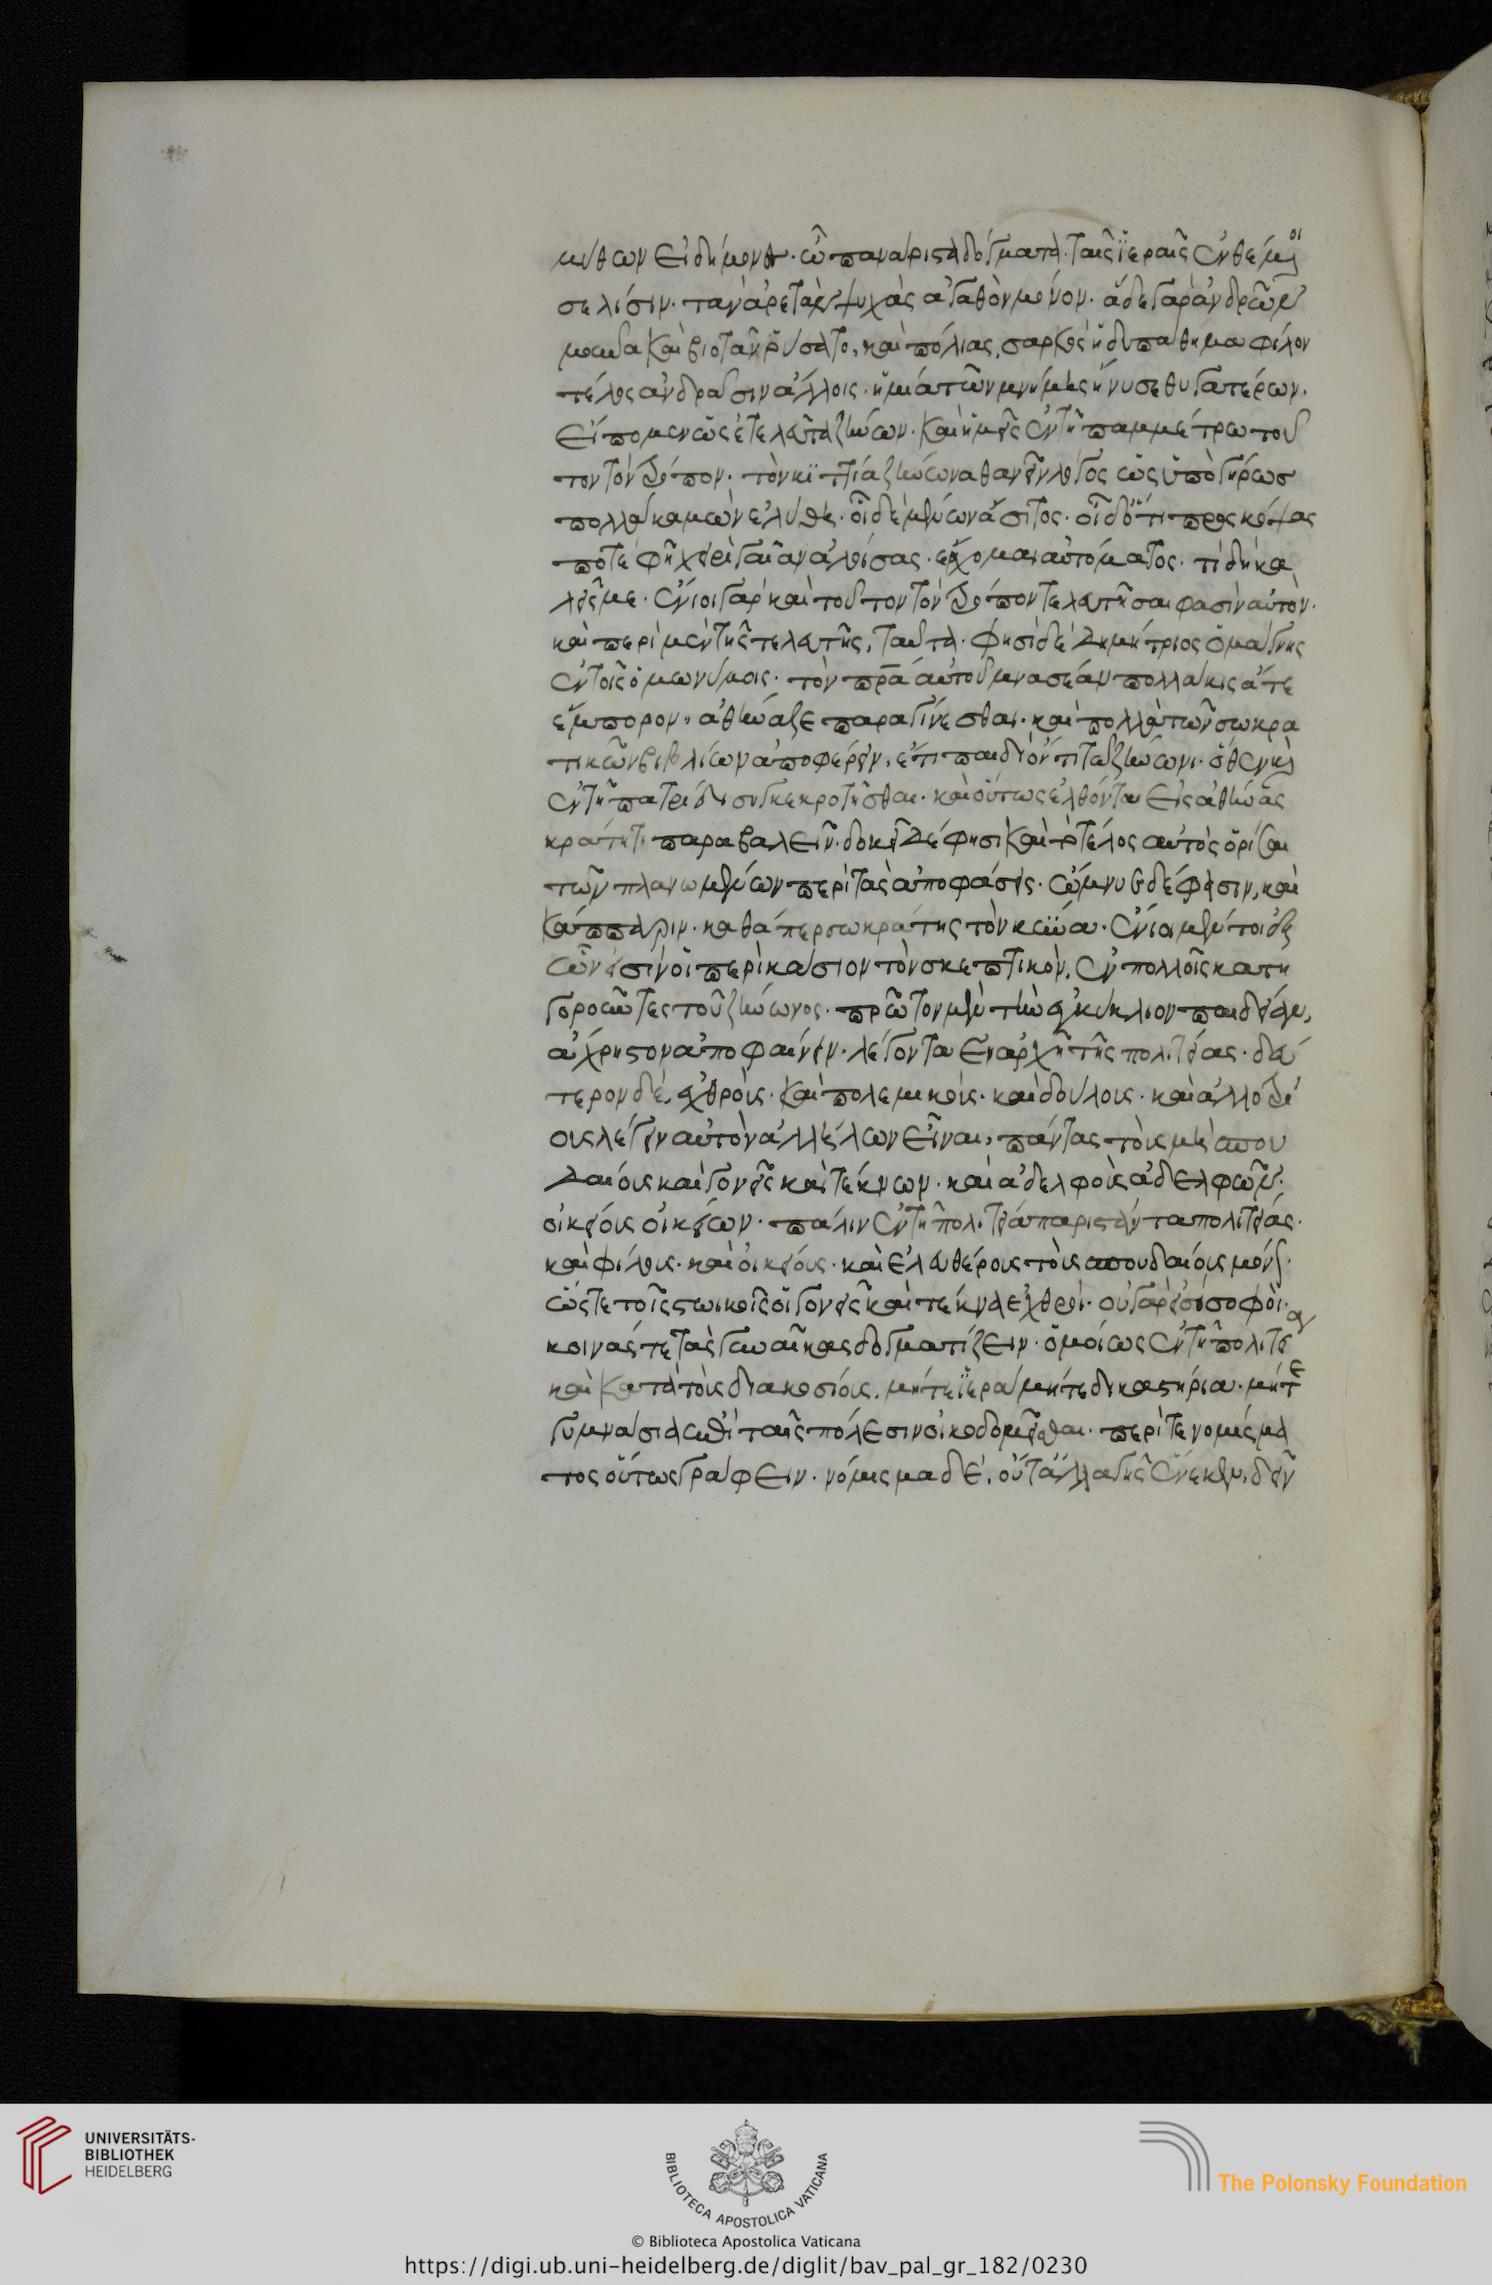 μύθων εἰδήμονες· ὦ πανάριστα δόγματα ταῖς ἱεραῖς ἐνθέμενοι
σελίσιν· τὰν ἀρετὰν ψυχᾶς ἀγαθὸν μόνον· ἅδε γὰρ ἀνδρῶν
μούνα καὶ βιοτὰν ῥύσατο, καὶ πόλιας, σαρκὸς ἡδυπάθημα φίλον
τέλος ἀνδράσιν ἄλλοις· ἡ μία τῶν μνήμης ἤνυσε θυγατέρων.
εἴπομεν ὡς ἐτελεύτα ζήνων· καὶ ἡμεῖς ἐν τῇ παμμέτρω τοῦ
τον τὸν τρόπον· τὸν κιτιᾶ ζήνωνα θανεῖν λόγος ὡς ὑπὸ γήρως
πολλὰ καμὼν ἐλύθη· οἱ δὲ μένων ἄσιτος· οἱ δ' ὅτι προσκόψας
ποτ' ἔφη χειρὶ γαῖαν ἀλοίσας· ἔρχομαι αὐτόματος· τί δὴ κα
λεῖς με· ἔνιοι γὰρ καὶ τοῦτον τὸν τρόπον τελευτῆσαι φασὶν αὐτόν·
καὶ περὶ μὲν τῆς τελευτῆς, ταῦτα· φησὶ δὲ δημήτριος ὁ μάγνης
ἐν τοῖς ὁμωνύμοις· τὸν πρα αὐτοῦ μνασέαν πολλάκις ἅτε
ἔμπορον, ἀθήναζε παραγίνεσθαι· καὶ πολλὰ τῶν σωκρα
τικῶν βιβλίων ἀποφέρειν, ἔτι παιδὶ ὄντι τῶ ζήνωνι· ὅθεν καὶ
ἐν τῇ πατρίδι συγκεκροτῆσθαι· καὶ οὕτως ἐλθόντα εἰς ἀθήνας
κράτητι παραβαλεῖν· δοκεῖ δέ φησι καὶ τὸ τέλος αὐτὸς ὁρίσαι
τῶν πλανωμένων περὶ τὰς ἀποφάσεις· ὤμνυε δέ φασιν, καὶ
κάππαριν· καθάπερ σωκράτης τὸν κύνα· ἔνιοι μέντοι ἐξ
ὧν εἰσὶν οἱ περὶ κάσιον τὸν σκεπτικόν, ἐν πολλοῖς κατη
γοροῦντες τοῦ ζήνωνος· πρῶτον μὲν τὴν ἐγκύκλιον παιδείαν,
ἄχρηστον ἀποφαίνειν· λέγοντα ἐν ἀρχῇ τῆς πολιτείας· δεύ
τερον δέ, ἐχθροὺς· καὶ πολεμικοὺς· καὶ δούλους· καὶ ἀλλοτρί
ους λέγειν αὐτὸν ἀλλήλων εἶναι, πάντας τοὺς μὴ σπου
δαίους καὶ γονεῖς καὶ τέκνων· καὶ ἀδελφοὺς ἀδελφῶν·
οἰκείους οἰκείων· πάλιν ἐν τῇ πολιτεία παριστάντα πολίτας·
καὶ φίλους· καὶ οἰκείους· καὶ ἐλευθέρους τοὺς σπουδαίους μόνον·
ὥστε τοῖς στωικοῖς οἱ γονεῖς καὶ τέκνα ἐχθροί· οὐ γάρ εἰσι σοφοί·
κοινάς τε τὰς γυναῖκας δογματίζειν· ὁμοίως ἐν τῇ πολιτεία
καὶ κατὰ τοὺς διακοσίους, μήτε ἱερὰ μήτε δικαστήρια· μήτε
γυμνάσια ἐν ταῖς πόλεσιν οἰκοδομεῖσθαι· περί τε νομίσμα
τος οὕτως γράφειν· νόμισμα δέ, οὔτ' ἀλλαγῆς ἕνεκεν, δεῖν
UNIVERSITÄTS-
BIBLIOTHEK
HEIDELBERG
BIBLIOTECA APOSTOLICA VATICANA
The Polonsky Foundation
© Biblioteca Apostolica Vaticana
https://digi.ub.uni-heidelberg.de/diglit/bav_pal_gr_182/0230